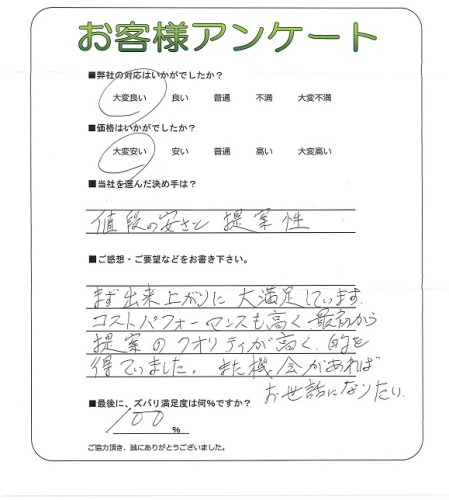 お客様アンケート
■弊社の対応はいかがでしたか？
大変良い 良い 普通 不満 大変不満
■価格はいかがでしたか？
大変安い 安い 普通 高い 大変高い
■当社を選んだ決め手は？
値段の安さと 提案性
■ご感想・ご要望などをお書き下さい。
まず出来上がりに大満足しています。
コストパフォーマンスも高く、最初から
提案のクオリティが高く、的を
得ていました。また機会があれば
お世話になりたい。
■最後に、ズバリ満足度は何%ですか？
100
%
ご協力頂き、誠にありがとうございました。